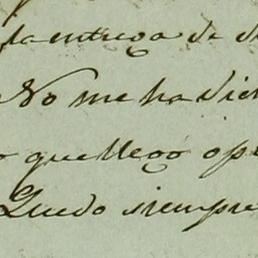 la entrega de
No me ha dich
que llegó
Quedo siempre